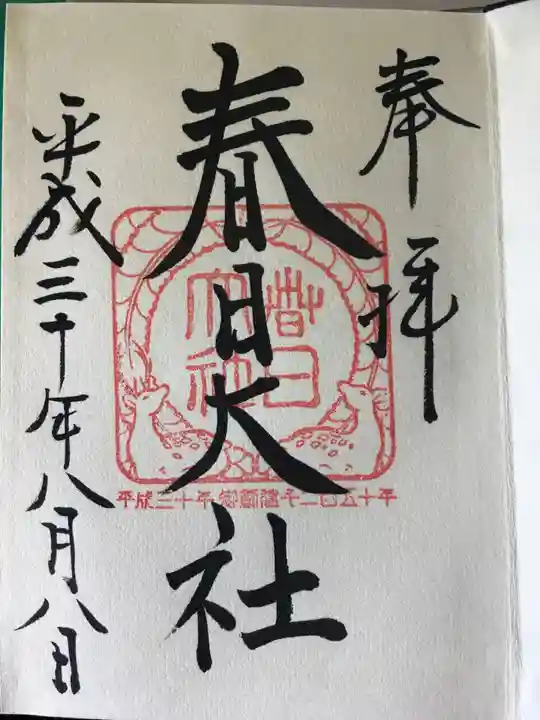 奉拝
春日大社
春日
大社
平成三十年 御創建千二百五十年
平成三十年八月八日